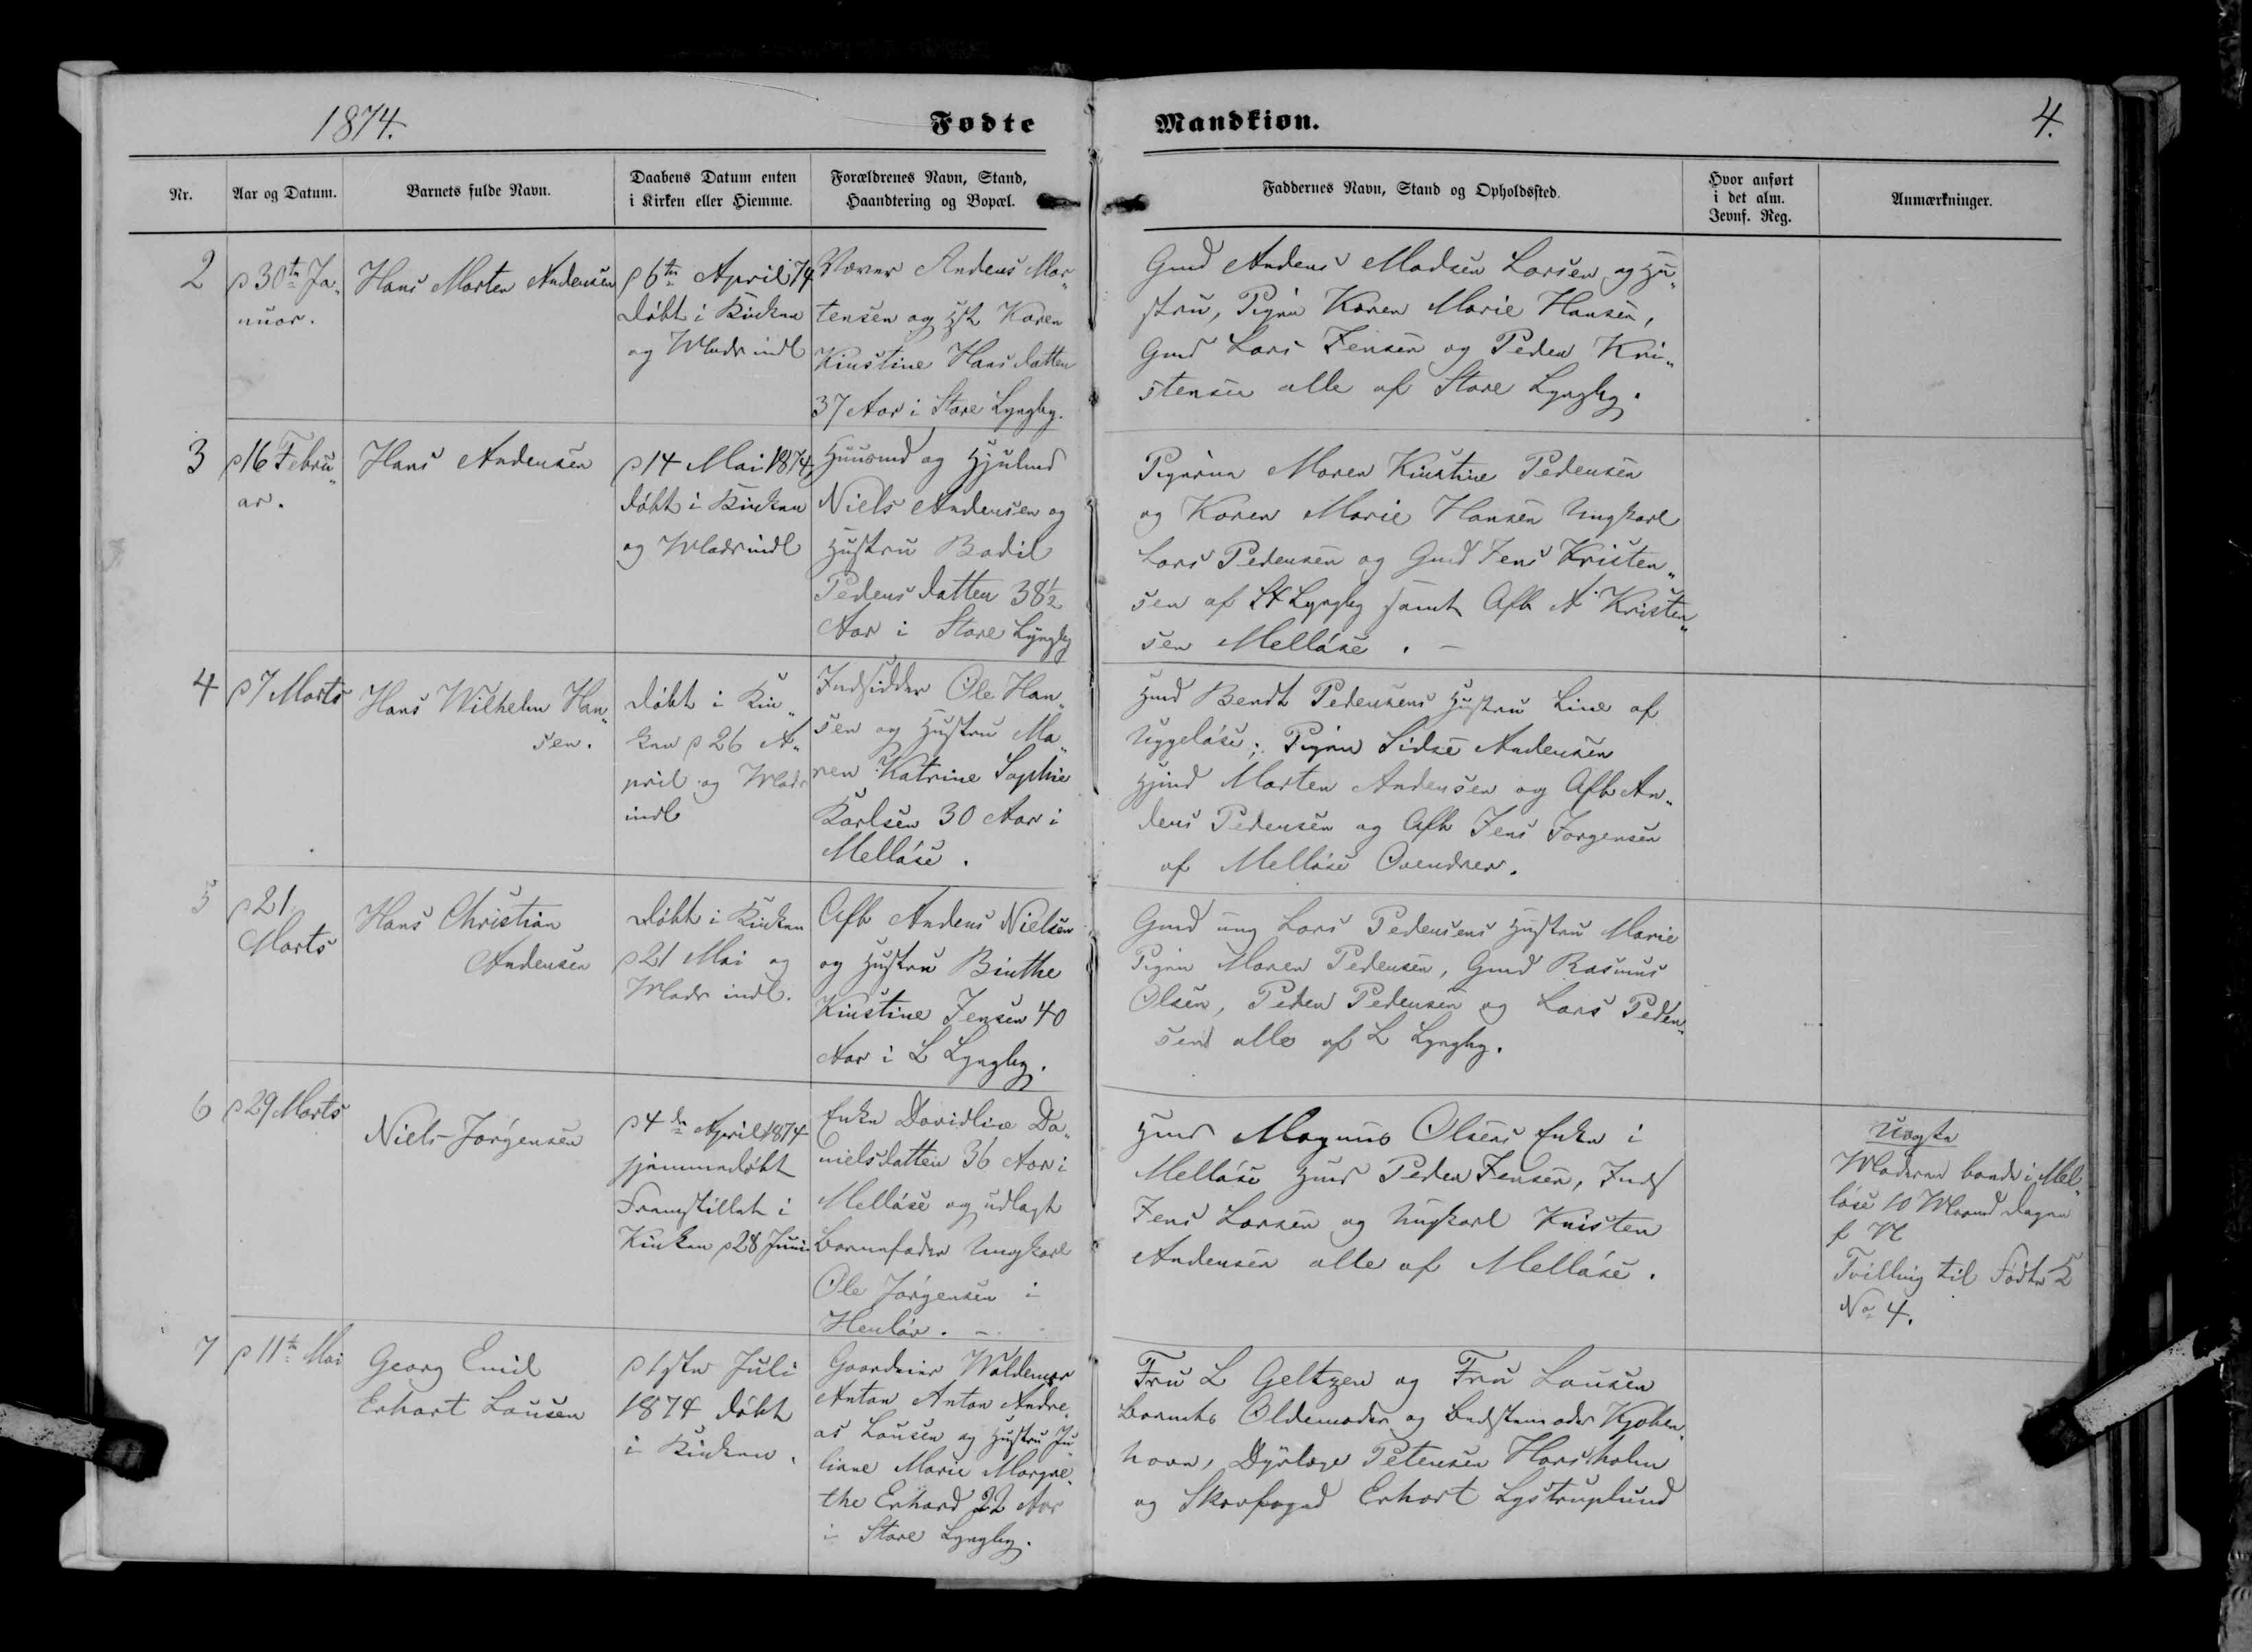 1874.
Fødte
Mandkiøn.
4.
Nr.
Aar og Datum.
Barnets fulde Navn.
Daabens Datum enten
i Kirken eller Hiemme.
Forældrenes Navn, Stand,
Haandtering og Bopæl.
Faddernes Navn, Stand og Opholdssted.
Hvor anført
i det alm.
Jevnf. Reg.
Anmærkninger.
2
p 30te Ja„
nuar.
Hans Morten Andersen
p 6te April 74
døbt i Kirken
og Modr indl
Væver Anders Mor„
tensen og Hst Karen
Kirstine Hansdatter
37 Aar i Store Lyngby.
Gmd Anders Madsen Larsen og Hu„
stru, Pigen Karen Marie Hansen,
Gmd Lars Jensen og Peder Kri„
stensen alle af Store Lyngby.
3
p 16 Febru„
ar.
Hans Andersen
p 14 Mai 1874
døbt i Kirken
og Modr indl
Huusmd og Hjulmd
Niels Andersen og
Hustru Bodil
Pedersdatter 38½
Aar i Store Lyngby
Pigerne Maren Kirstine Pedersen
og Karen Marie Hansen Ungkarl
Lars Pedersen og Gmd Jens Kristen„
sen af St Lyngby samt Afb A Kristen„
sen Melløse . –
4
p 7 Marts
Hans Wilhelm Han„
sen.
døbt i Kir„
ken p 26 A„
pril og Modr
indl
Indsidder Ole Han„
sen og Hustru Ma„
ren Katrine Sophie
Karlsen 30 Aar i
Melløse .
Hmd Bendt Pedersens Hustru Line af
Uggeløse; Pigen Sidse Andersen
Hjmd Morten Andersen og Afb An„
ders Pedersen og Afb Jens Jørgensen
af Melløse Overdrev.
5
p 21
Marts
Hans Christian
Andersen
døbt i Kirken
p 21 Mai og
Modr indl.
Afb Anders Nielsen
og Hustru Birthe
Kirstine Jensen 40
Aar i L Lyngby.
Gmd ung Lars Pedersens Hustru Marie
Pigen Maren Pedersen, Gmd Rasmus
Olsen, Peder Pedersen og Lars Peder„
sen alle af L Lyngby.
6
p 29 Marts
Niels Jørgensen
p 4de April 1874
hjemmedøbt
Fremstillet i
Kirken p 28 Juni
Enke Davidline Da„
nielsdatter 36 Aar i
Melløse og udlagt
Barnefader Ungkarl
Ole Jørgensen i
Herløv. –
Hmd Magnus Olsens Enke i
Melløse Hmd Peder Jensen, Inds
Jens Larsen og Ungkarl Kristen
Andersen alle af Melløse.
Uægte
Moderen boede i Mel„
løse 10 Maaned dagen
f N
Tvilling til Fødte
No 4.
7
p 11te Mai
Georg Emil
Erhart Lausen
p 1ste Juli
1874 døbt
i Kirken.
Gaardeier Waldemar
Anton Anton Andre„
as Lausen og Hustru Ju„
liane Marie Margre„
the Erhard 22 Aar
i Store Lyngby.
Fru L Geltzer og Fru Lausen
Barnets Oldemoder og Bedstemoder Kjøben„
havn, Dyrlæge Petersen Hørsholm
og Skovfoged Erhart Lystruplund